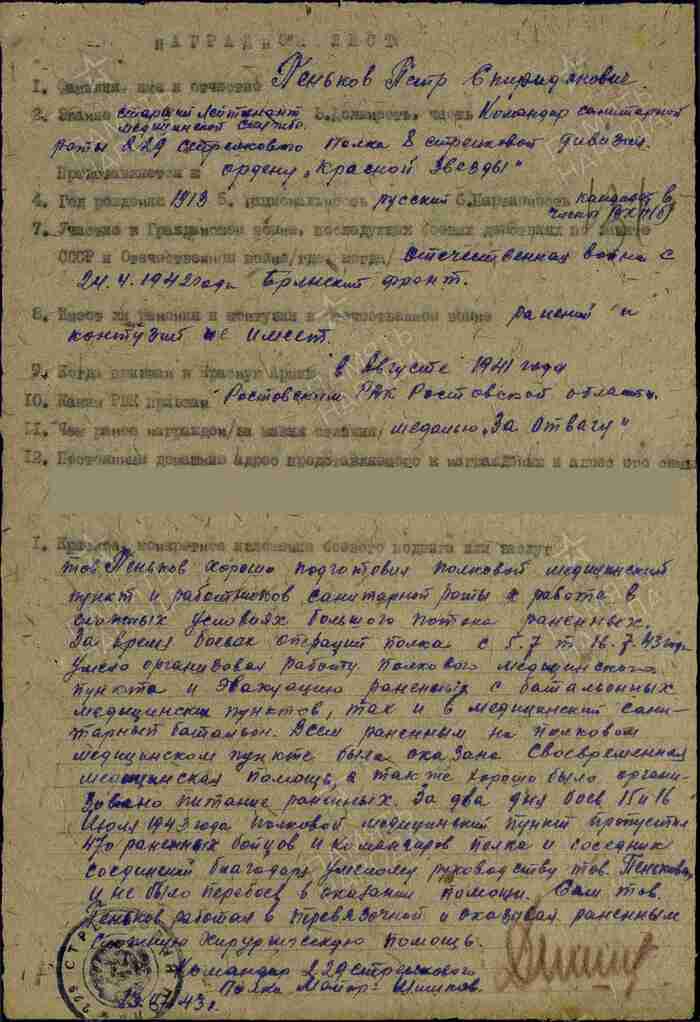 НАГРАДНОЙ ЛИСТ
1. Фамилия, имя и отчество Пеньков Петр Спиридонович
2. Звание старший лейтенант медицинской службы 3. Должность, часть Командир санитарной
роты 229 стрелкового полка 8 стрелковой дивизии.
Представляется к ордену „Красной Звезды"
4. Год рождения 1913 5. Национальность русский 6. Партийность кандидат в члены ВКП(б)
7. Участие в Гражданской войне, последующих боевых действиях по защите
СССР и Отечественной войне/где, когда/ отечественная война с
24.4.1942 года Брянский фронт.
8. Имеет ли ранения и контузии в отечественной войне ранений и
контузий не имеет.
9. Когда призван в Красную Армию в Августе 1941 года
10. Каким РВК призван Ростовским РВК Ростовской области.
11. Чем ранее награжден/за какие отличия/ медалью „За отвагу"
12. Постоянный домашний адрес представляемого к награждению и адрес его семьи
1. Краткое, конкретное изложение боевого подвига или заслуг
тов. Пеньков хорошо подготовил полковой медицинский
пункт и работников санитарной роты к работе в
сложных условиях большого потока раненных.
За время боевых операций полка с 5.7 по 16.7.43 года
умело организовал работу полкового медицинского
пункта и эвакуацию раненных с батальонных
медицинских пунктов, так и в медицинский сани-
тарный батальон. Всем раненным на полковом
медицинском пункте была оказана своевременная
медицинская помощь, а так же хорошо было органи-
зовано питание раненных. За два дня боев 15 и 16
Июля 1943 года полковой медицинский пункт пропустил
470 раненных бойцов и командиров полка и соседних
соединений благодаря умелому руководству тов. Пенькова
и не было перебоев в оказании помощи. Сам тов.
Пеньков работал в перевязочной и оказывал раненным
сложную хирургическую помощь.
Командир 229 стрелкового
полка Майор - Шишков.
43 г.
229 СТР